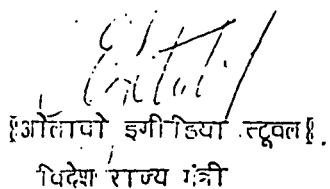 §ओलावो इगीडिया स्टूवल§.
विदेश राज्य मंत्री